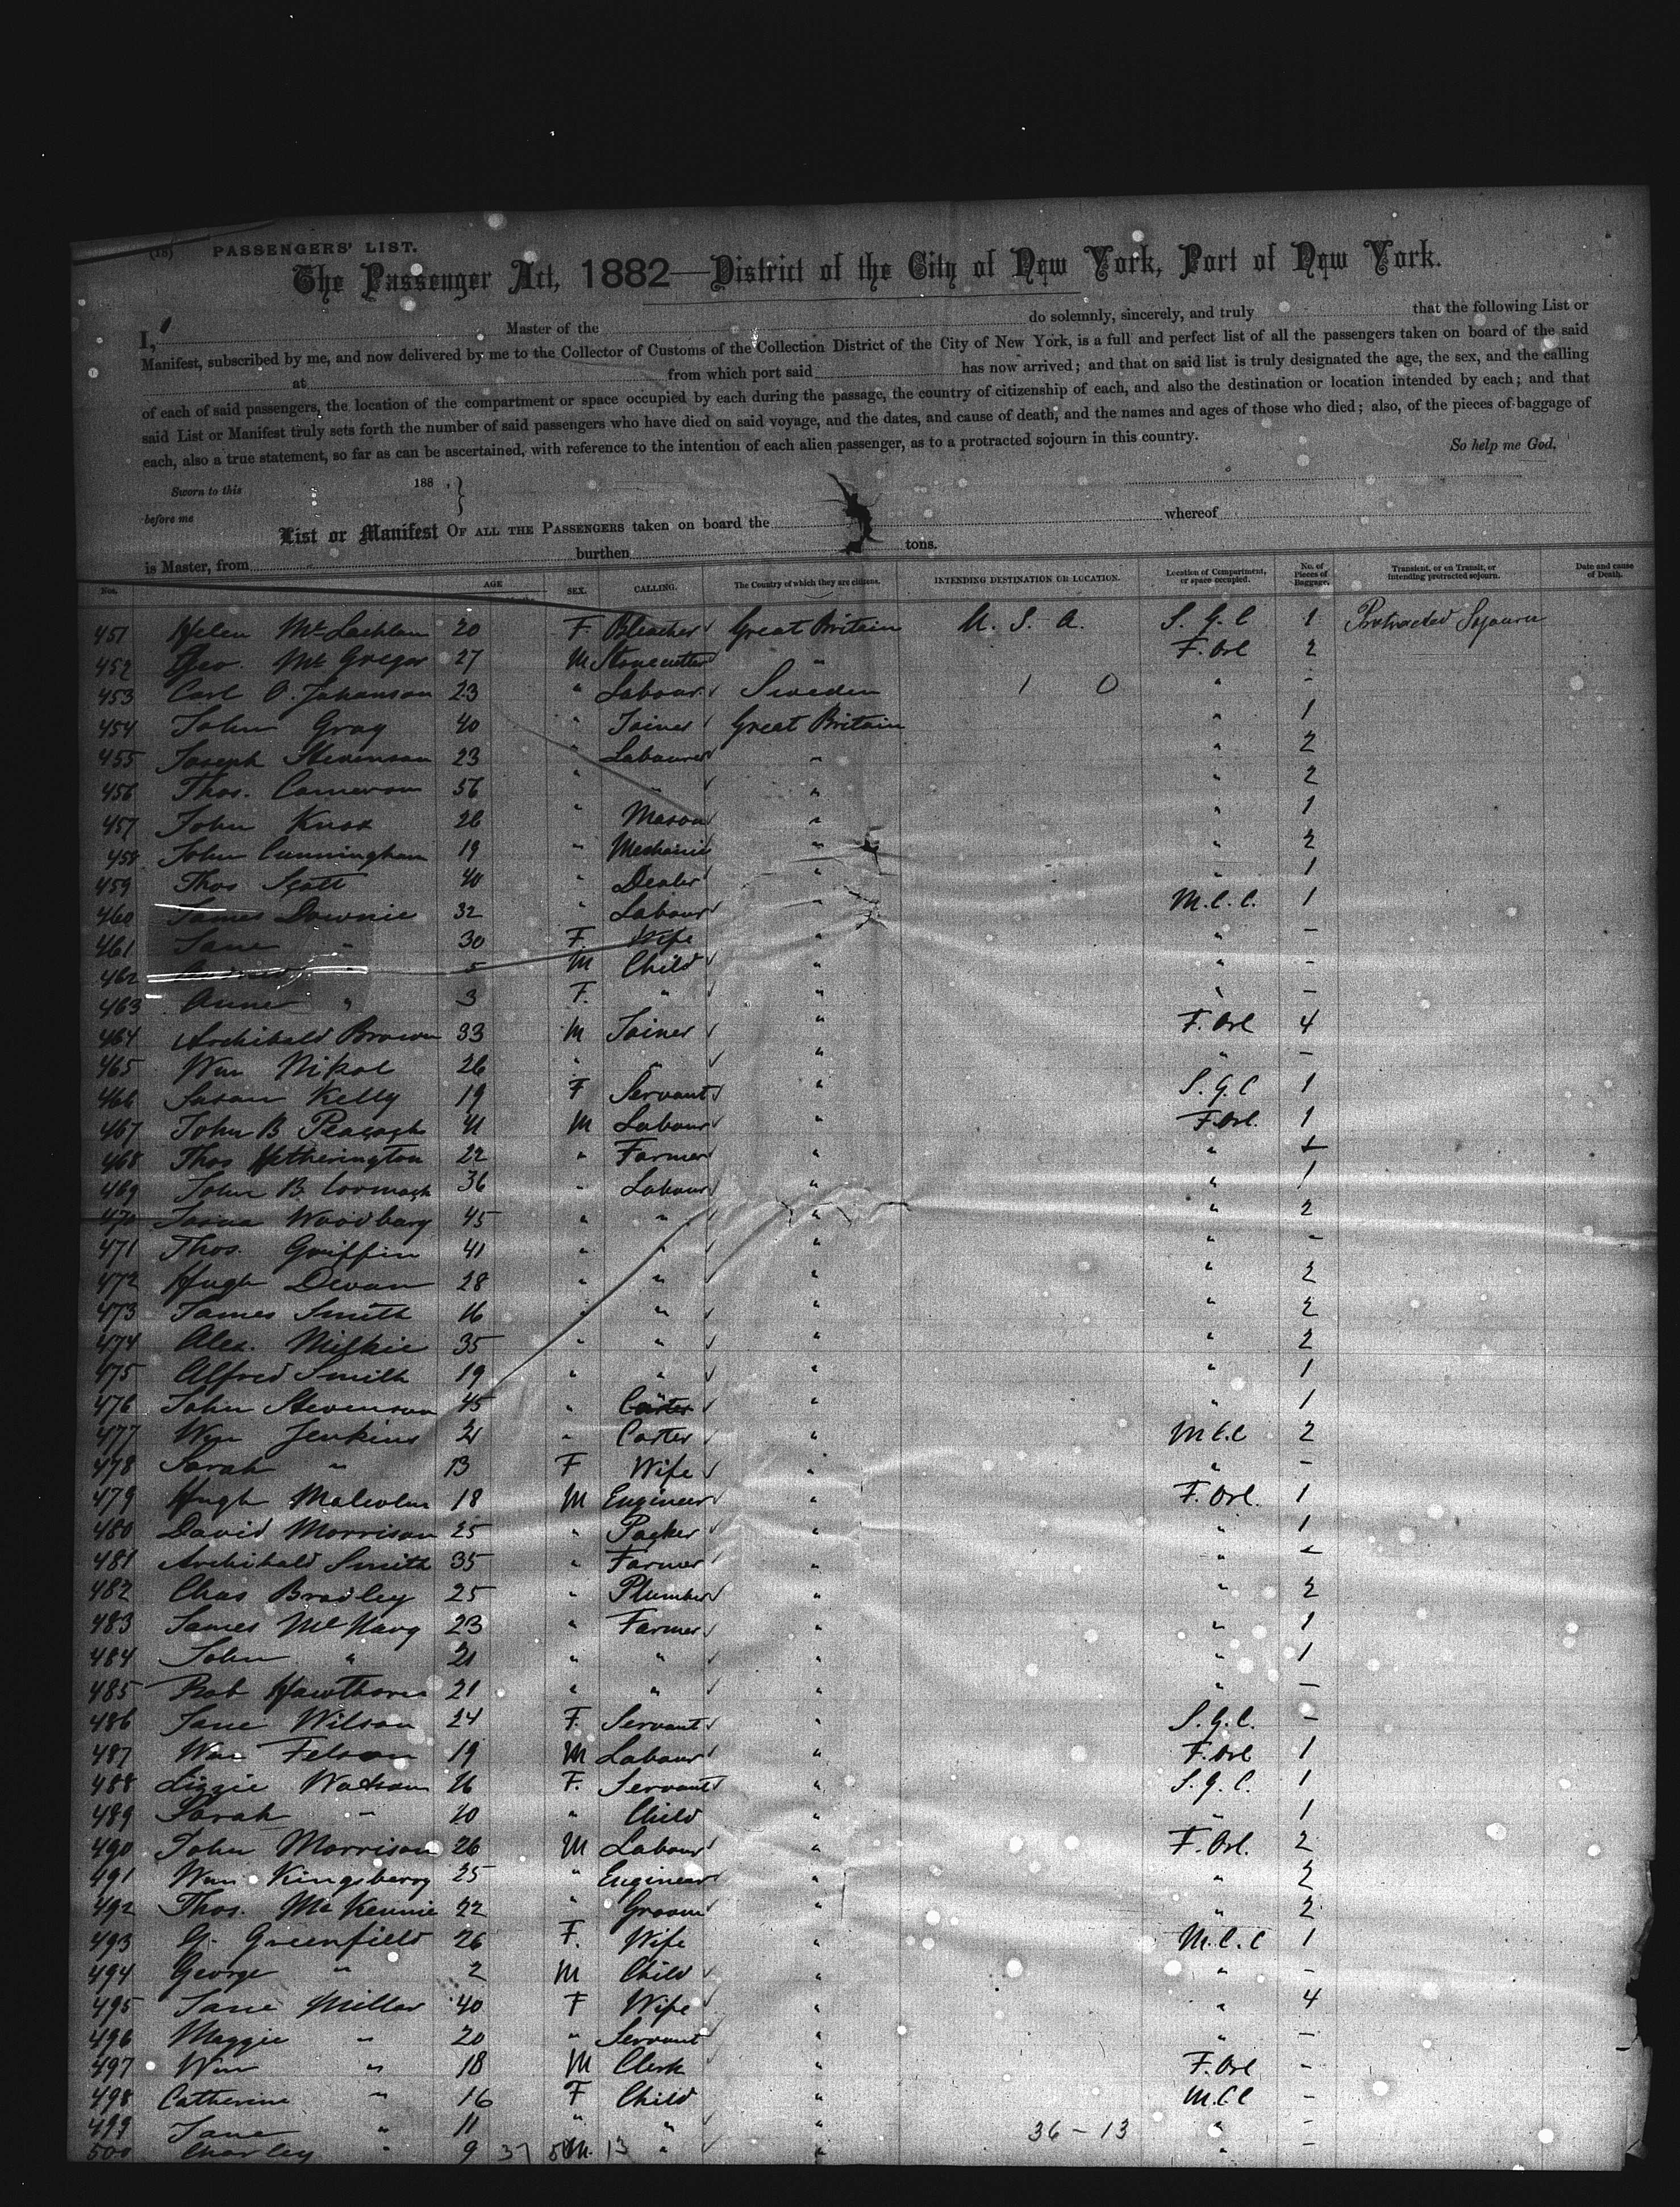 (18) PASSENGERS' LIST.
The Passenger Act, 1882—District of the City of New York, Port of New York.
I, Master of the do solemnly, sincerely, and truly that the following List or
Manifest, subscribed by me, and now delivered by me to the Collector of Customs of the Collection District of the City of New York, is a full and perfect list of all the passengers taken on board of the said
at from which port said has now arrived; and that on said list is truly designated the age, the sex, and the calling
of each of said passengers, the location of the compartment or space occupied by each during the passage, the country of citizenship of each, and also the destination or location intended by each; and that
said List or Manifest truly sets forth the number of said passengers who have died on said voyage, and the dates, and cause of death, and the names and ages of those who died; also, of the pieces of baggage of
each, also a true statement, so far as can be ascertained, with reference to the intention of each alien passenger, as to a protracted sojourn in this country. So help me God.
Sworn to this 188 }
before me
List or Manifest OF ALL THE PASSENGERS taken on board the whereof
is Master, from burthen tons.
Nos. AGE SEX. CALLING. The Country of which they are citizens. INTENDING DESTINATION OR LOCATION. Location of Compartment, or space occupied. No. of Pieces of Baggage. Transient, or on Transit, or intending protracted sojourn. Date and cause of Death.
451 Helen McLachlan 20 F Bleacher Great Britain U. S. A. S. G. C 1 Protracted Sojourn
452 Geo. McGregor 27 M Stonecutter " F. Orl 2
453 Carl O. Johanson 23 " Labour Sweden 1 0 " -
454 John Gray 40 " Joiner Great Britain " 1
455 Joseph Stevenson 23 " Labourer " " 2
456 Thos. Cameron 56 " " " " 2
457 John Knox 26 " Mason " " 1
458 John Cunningham 19 " Mechanic " " 2
459 Thos Scott 40 " Dealer " " 1
460 James Downie 32 " Labour " M. C. C. 1
461 Jane " 30 F. Wife " " -
462 " 5 M Child " " -
463 Anne " 3 F. " " " -
464 Archibald Brown 33 M Joiner " F. Orl 4
465 Wm Nikol 26 " " " " -
466 Susan Kelly 19 F Servant " S. G. C 1
467 John B 41 M Labour " F. Orl. 1
468 Thos Hetherington 22 " Farmer " "
469 John B. Cormack 36 " Labour " " 1
470 Woodbury 45 " " " " 2
471 Thos. Griffin 41 " " " " -
472 Hugh Devan 28 " " " " 2
473 James Smith 16 " " " " 2
474 Alex. 35 " " " " 2
475 Alfred Smith 19 " " " " 1
476 John Stevenson 45 " " " 1
477 Wm Jenkins 21 " Carter " M C. C 2
478 Sarah " F Wife " " -
479 Hugh Malcolm 18 M Engineer " F. Orl. 1
480 David Morrison 25 " Packer " " 1
481 Archibald Smith 35 " Farmer " " -
482 Chas Bradley 25 " Plumber " " 2
483 James McHarg 23 " Farmer " " 1
484 John " 21 " " " " 1
485 Rob Hawthorn 21 " " " " -
486 Jane Wilson 24 F. Servant " S. G. C. -
487 Wm 19 M Labour " F. Orl 1
488 Lizzie Watson 16 F. Servant " S. G. C. 1
489 Sarah " " Child " " 1
490 John Morrison 26 M Labour " F. Orl. 2
491 Wm Kingsberry 25 " Engineer " " 2
492 Thos. McKennie 22 " Groom " " 2
493 G. Greenfield 26 F. Wife " M. C. C 1
494 George " 2 M Child " " -
495 Jane Millar 40 F Wife " " 4
496 Maggie " 20 " Servant " " -
497 Wm " 18 M Clerk " F. Orl -
498 Catherine " 16 F Child " M. C C -
499 Jane " 11 " " " 36 - 13 " -
500 Charley " 9 37 M. 13 " " " -